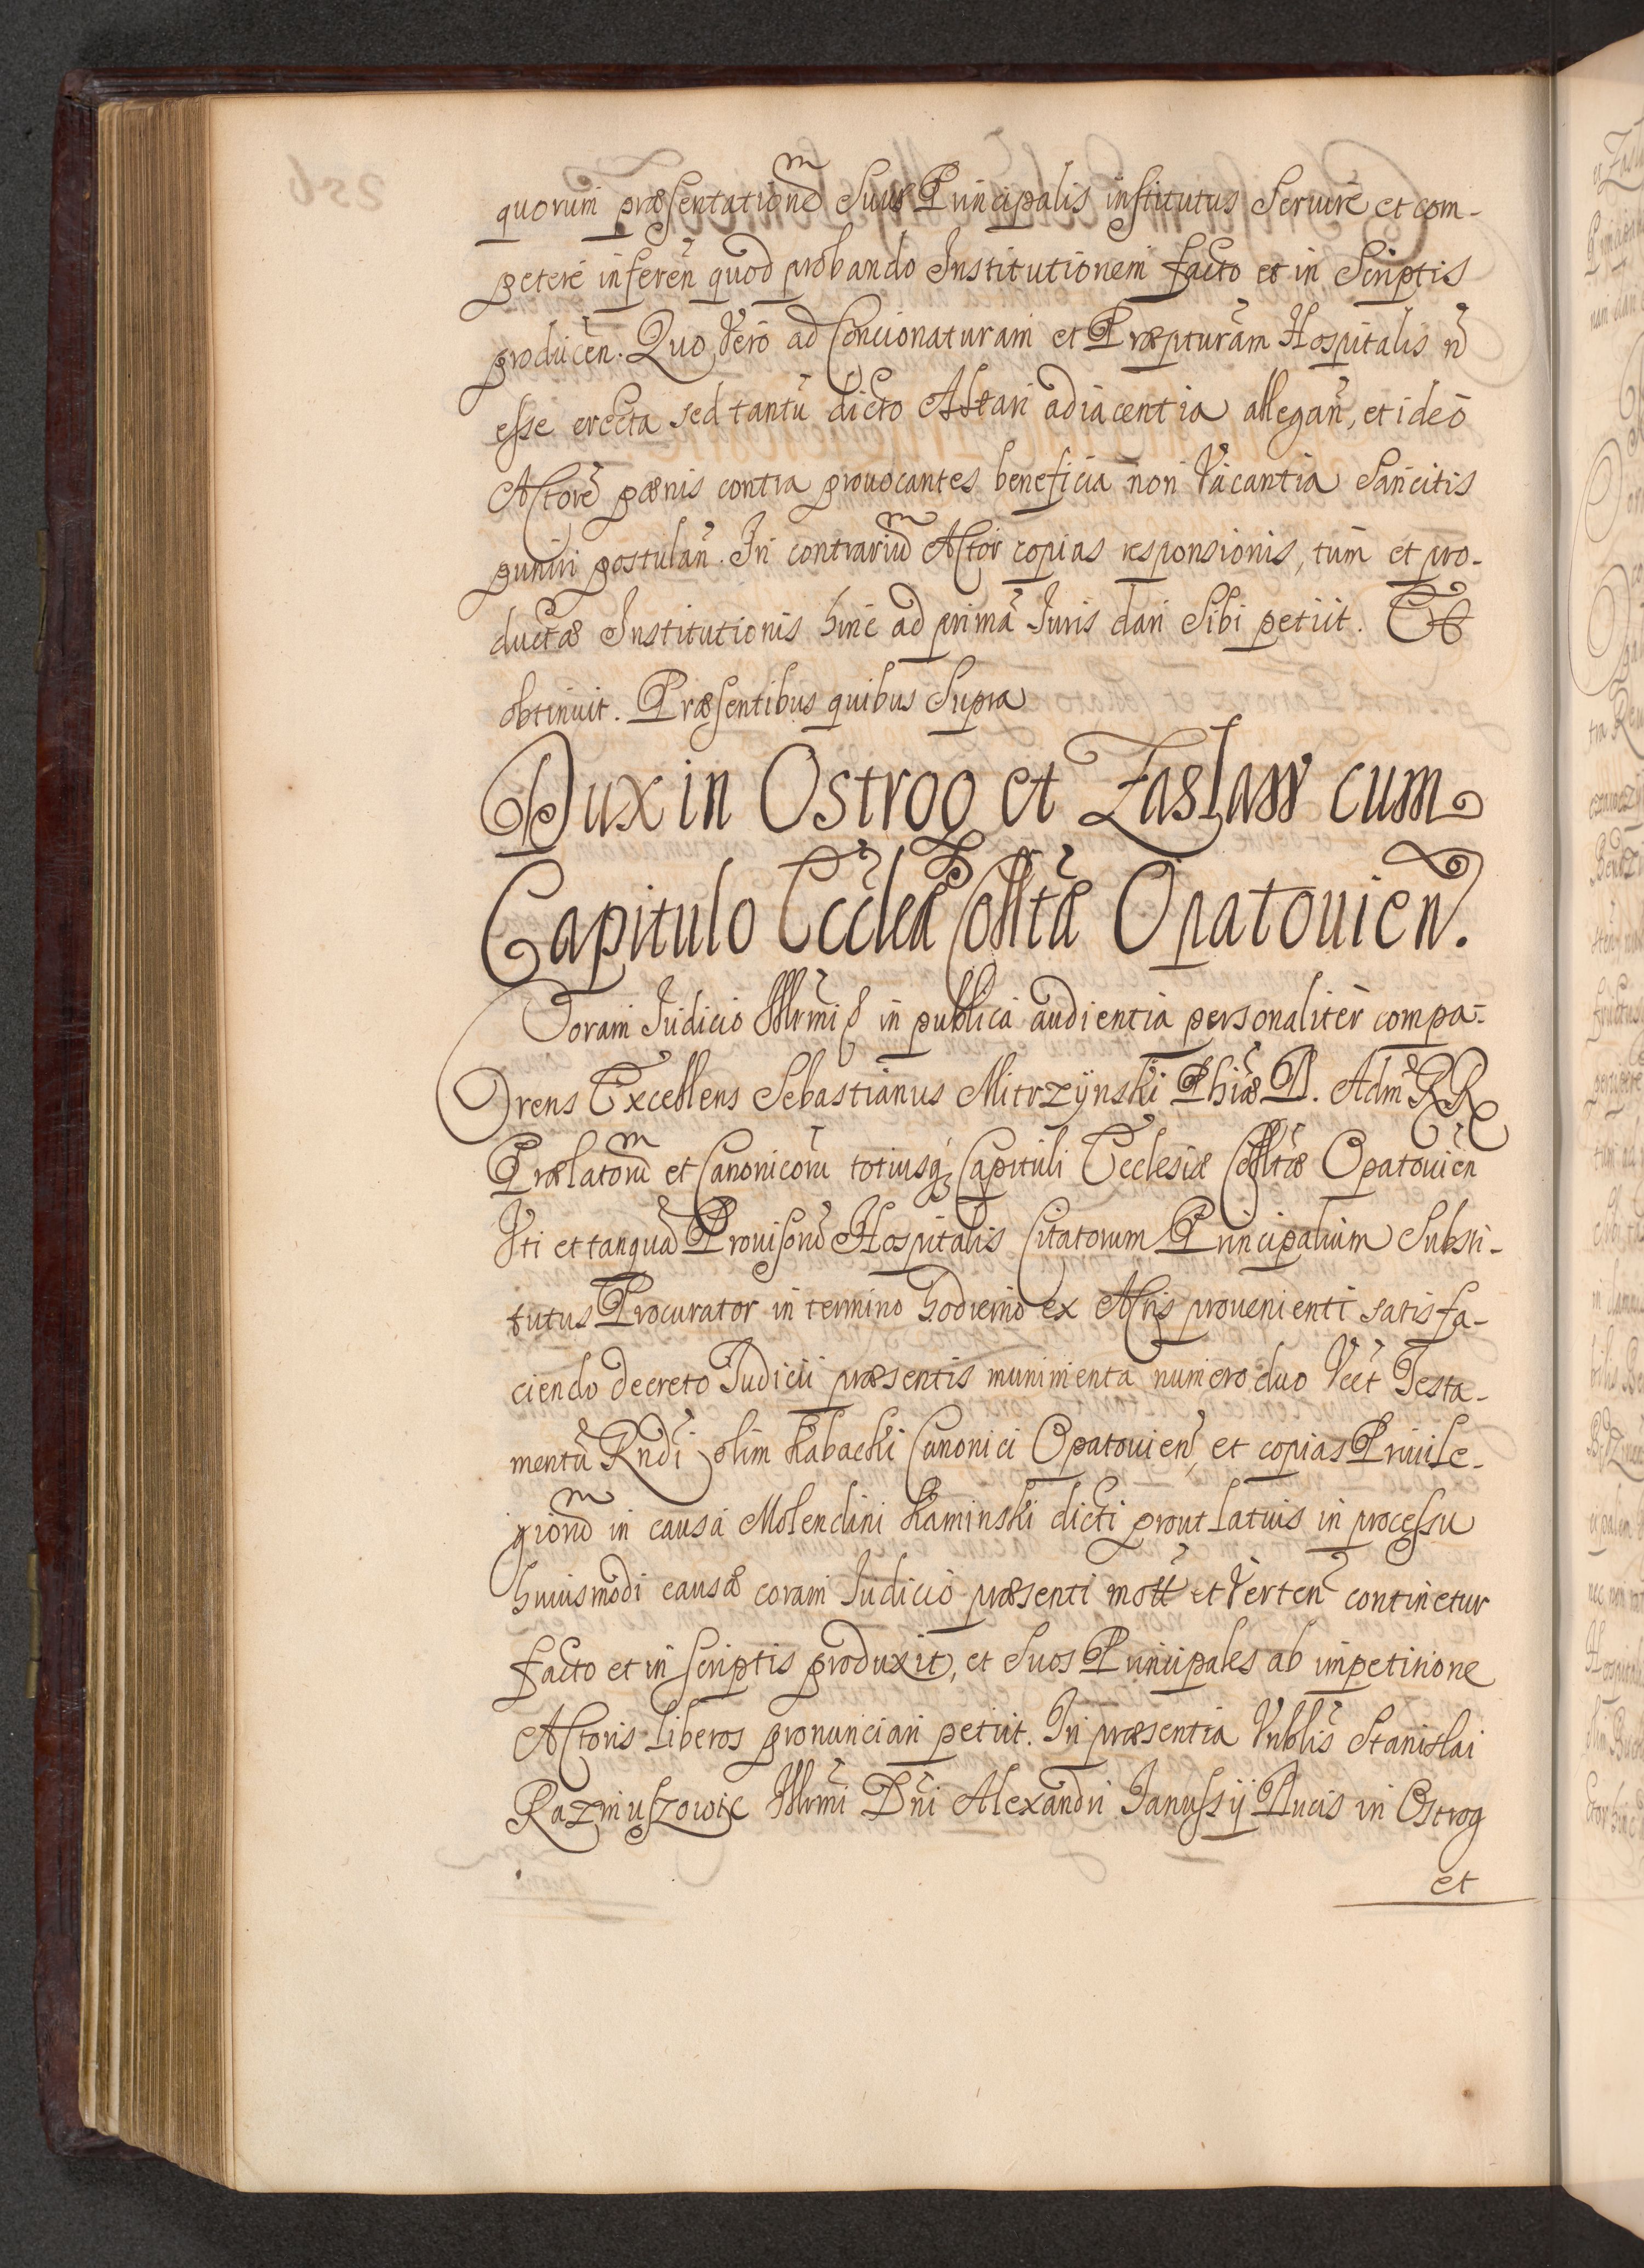 quorum præsentationē Suus Principalis institutus Seruire et com-
petere inferen̄ quod probando Institutionem facto et in Scriptis
producen. Quo Vero ad Concionaturam et Præpturam Hospitalis n̄
esse erecta sed tantū dicto Altari adiacentia allegan̄, et ideo
Actorē pœnis contra prouocantes beneficia non Vacantia Sancitis
puniri postulan̄. In contrariū Actor copias responsionis, tum et pro-
ductæ Institutionis hinc ad primā Iuris dari Sibi petiit. Et
obtinuit. Præsentibus quibus Supra
Dux in Ostrog et Zaslaw cum
Capitulo Eccleæ Colltæ Opatouien.
Coram Iudicio Illrmi S in publica audientia personaliter compa-
rens Excellens Sebastianus Mitrzÿnski Phiæ D. Adm RR
Prælatorū et Canonicorū totiusq; Capituli Ecclesiæ Colltæ Opatouien
Vti et tanquā Prouisorū Hospitalis Citatorum Principalium Substi-
tutus Procurator in termino hodierno ex Actis prouenienti satisfa-
ciendo decreto Iudicii præsentis munimenta numero duo Vect Testa-
mentū Rndi olim Kabacki Canonici Opatouien̄, et copias Priuile-
giorū in causa Molendini Kaminski dicti prout Latius in processu
huiusmodi causæ coram Iudicio præsenti mott et Verten̄ continetur
facto et in scriptis produxit, et Suos Principales ab impetitione
Actoris Liberos pronunciari petiit. In præsentia Vnblis Stanislai
Razmuszowic Illrmi Dn̄i Alexandri Ianussij Ducis in Ostrog
et